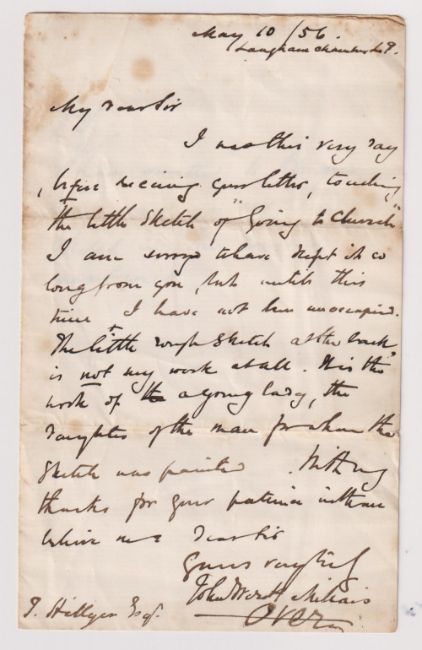 May 10 / 56.
Langham Chambers
My dear Sir
I was this very day
before receiving your letter, touching
the little sketch of "Going to Church"
I am sorry to have kept it so
long from you, but until this
time I have not been unoccupied.
The little rough sketch at the back
is not my work at all. It is the
work of a young lady, the
daughter of the man for whom the
sketch was painted. With my
thanks for your patience with me
believe me dear Sir
Yours very truly
John Everett Millais
Hillyer Esq.